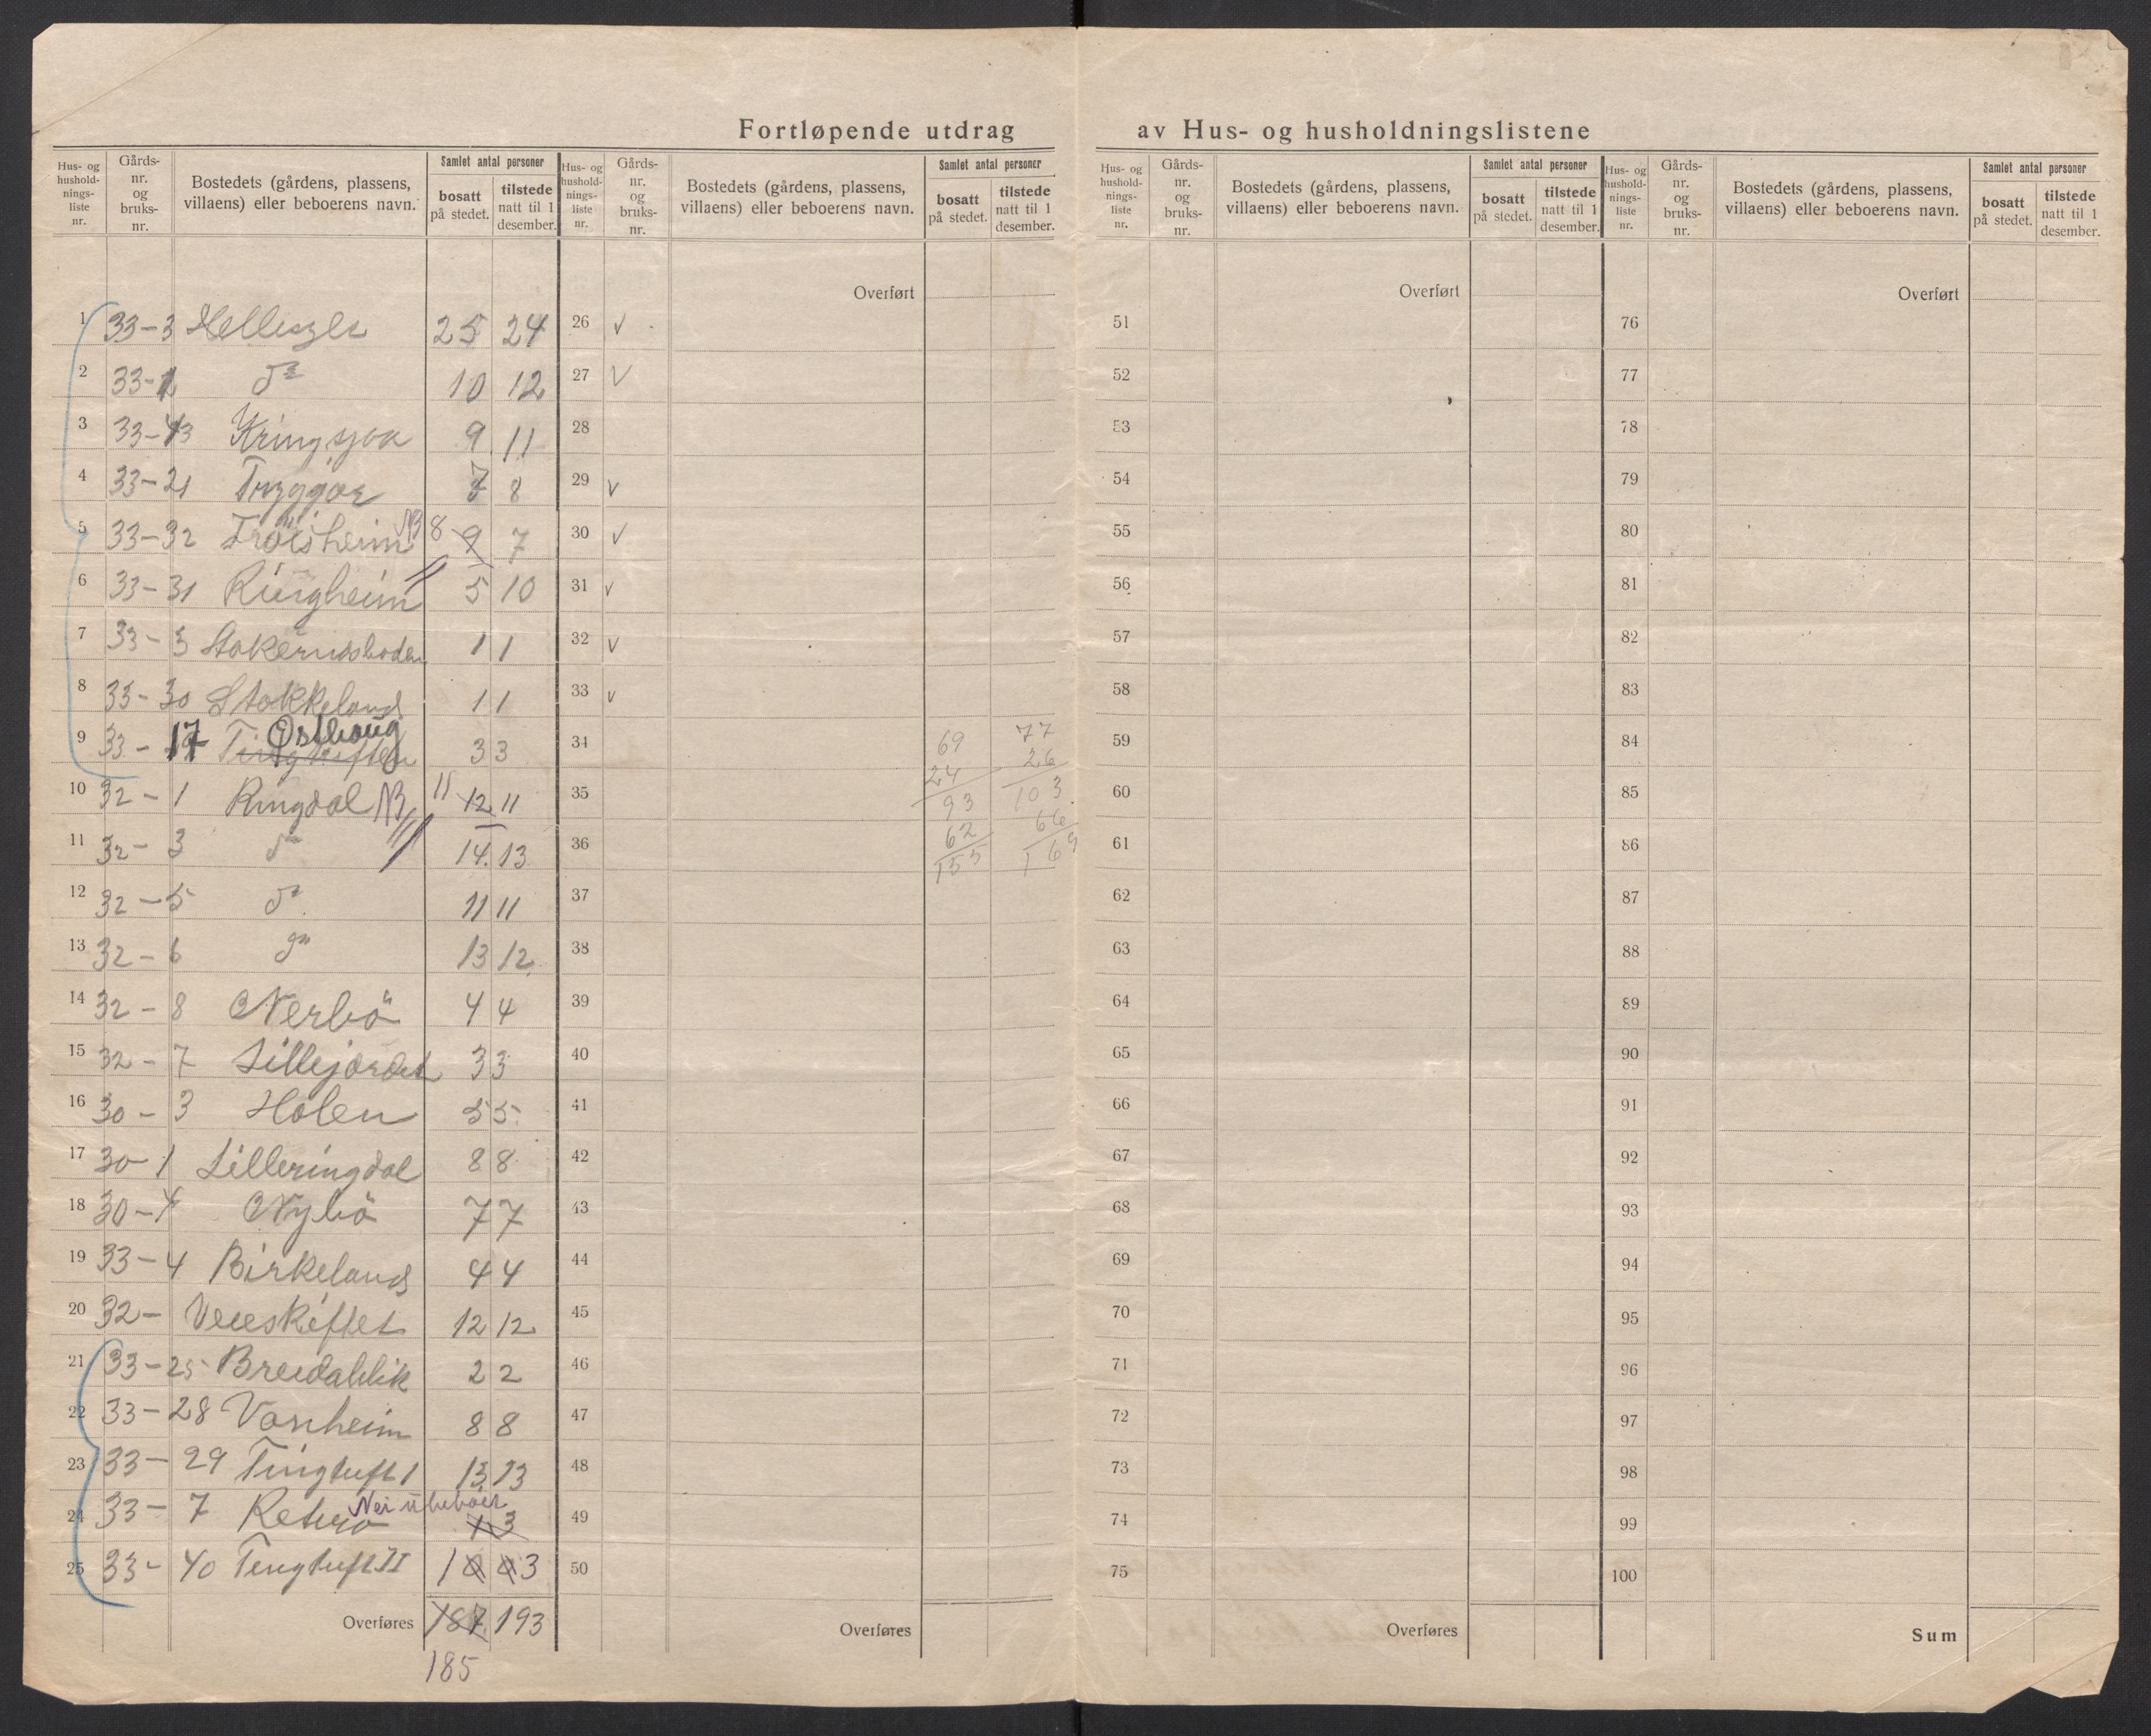 Fortløpende utdrag av Hus- og husholdningslistene
Hus- og hushold-nings-liste nr. Gårds-nr. og bruks-nr. Bostedets (gårdens, plassens, villaens) eller beboerens navn. Samlet antal personer bosatt på stedet. tilstede natt til 1 desember.
Hus- og hushold-nings-liste nr. Gårds-nr. og bruks-nr. Bostedets (gårdens, plassens, villaens) eller beboerens navn. Samlet antal personer bosatt på stedet. tilstede natt til 1 desember.
Hus- og hushold-nings-liste nr. Gårds-nr. og bruks-nr. Bostedets (gårdens, plassens, villaens) eller beboerens navn. Samlet antal personer bosatt på stedet. tilstede natt til 1 desember.
Hus- og hushold-nings-liste nr. Gårds-nr. og bruks-nr. Bostedets (gårdens, plassens, villaens) eller beboerens navn. Samlet antal personer bosatt på stedet. tilstede natt til 1 desember.
Overført Overført Overført
1 33-3 25 24 26 v 51 76
2 33- 10 12 27 v 52 77
3 33- Kringsjaa 9 11 28 53 78
4 33-21 Tryggar 7 8 29 v 54 79
5 33-32 NB 8 9 7 30 v 55 80
6 33-31 Ringheim 5 10 31 v 56 81
7 33-5 1 1 32 v 57 82
8 33-30 Stokkeland 1 1 33 v 58 83
9 33-17 Østhaug 3 3 34 69 77 59 84
24 26
10 32-1 Ringdal NB 11 12 11 35 93 103 60 85
62 66
11 32-3 do 14 13 36 155 169 61 86
12 32-5 do 11 11 37 62 87
13 32-6 do 13 12 38 63 88
14 32-8 Nerbö 4 4 39 64 89
15 32-7 Lillejordet 3 3 40 65 90
16 30-3 Holen 5 5 41 66 91
17 30-1 Lilleringdal 8 8 42 67 92
18 30-4 Nybö 7 7 43 68 93
19 33-4 Birkeland 4 4 44 69 94
20 32- Veieskiftet 12 12 45 70 95
21 33-25 Breidablik 2 2 46 71 96
22 33-28 Vonheim 8 8 47 72 97
23 33-29 Tingtuft I 13 13 48 73 98
24 33-7 Nei ubeboet 1 3 49 74 99
25 33-40 Tingtuft II 1 3 50 75 100
Overføres 187 193 Overføres Overføres Sum
185